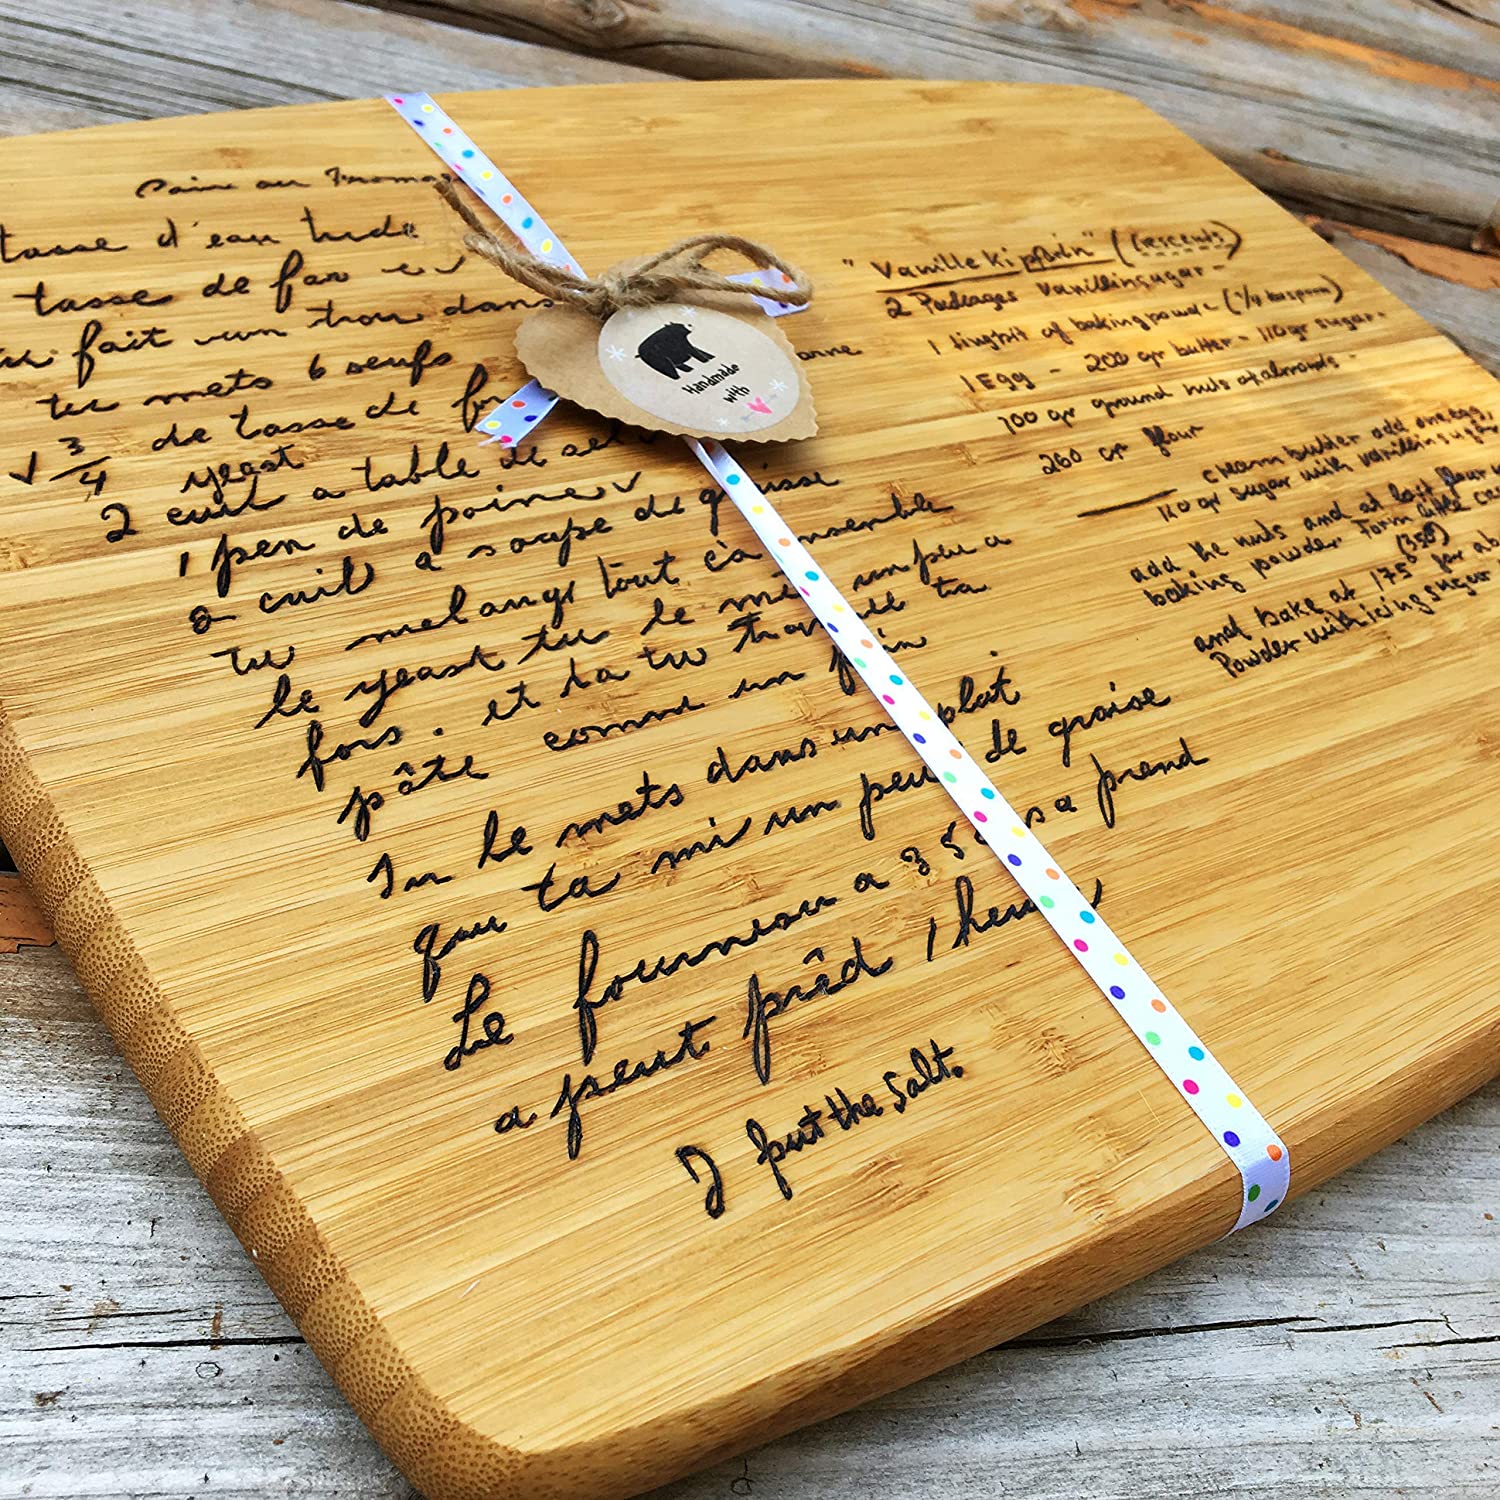 Pain au Fromage
tasse d'eau tiède
tasse de
tu fait un trou dans
tu mets 6 oeufs
3/4 de tasse de
yeast
2 cuil a table de sel
1 pen de poivre
2 cuil a soupe de graisse
tu melange tout ça ensemble
le yeast tu le mét un peu a
fois. et la tu travail ta
pâte comme un pain
Tu le mets dans un plat
que ta mi un peu de graise
Le fourneau a 350 sa prend
a peut prêd 1 heure
I put the salt.
Handmade
with
"Vanillekipferln" (Crescents)
2 Packages vanillinsugar -
1 tingbit of baking powder (1/4 teaspoon)
1 Egg - 200 gr butter - 110 gr sugar -
100 gr ground nuts or almonds -
260 gr flour
cream butter add one egg,
110 gr sugar with vanillinsugar
add the nuts and at last flour
baking powder. Form little
and bake at 175° (350°) for
Powder with icing sugar